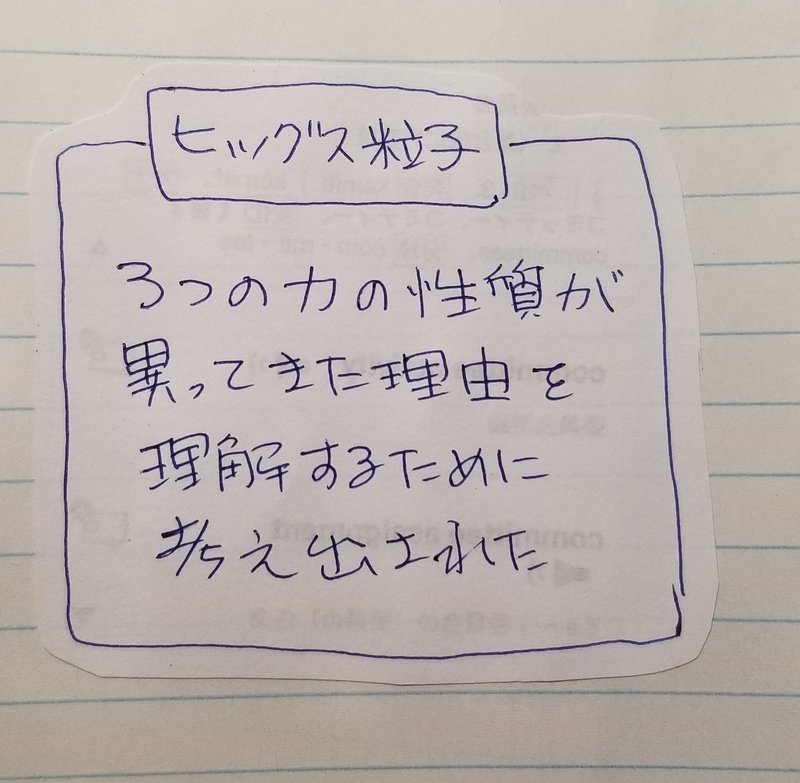 ヒッグス粒子
3つの力の性質が
異ってきた理由を
理解するために
考え出された